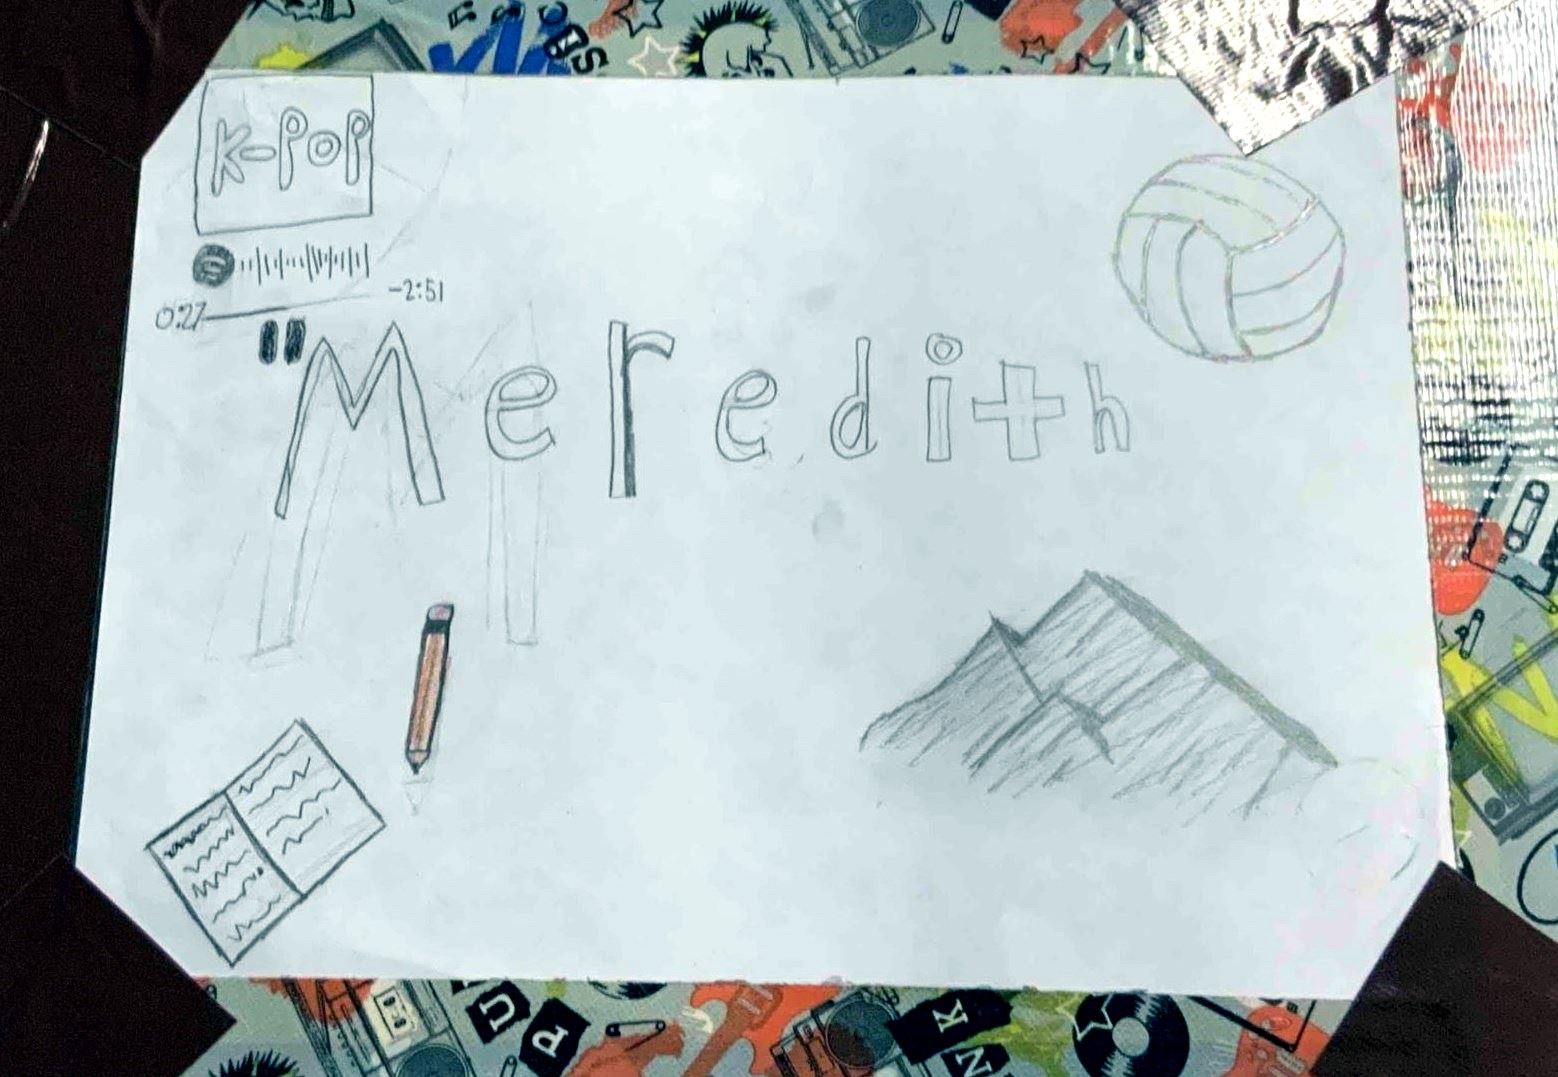 K-POP
0:27 -2:51
Meredith